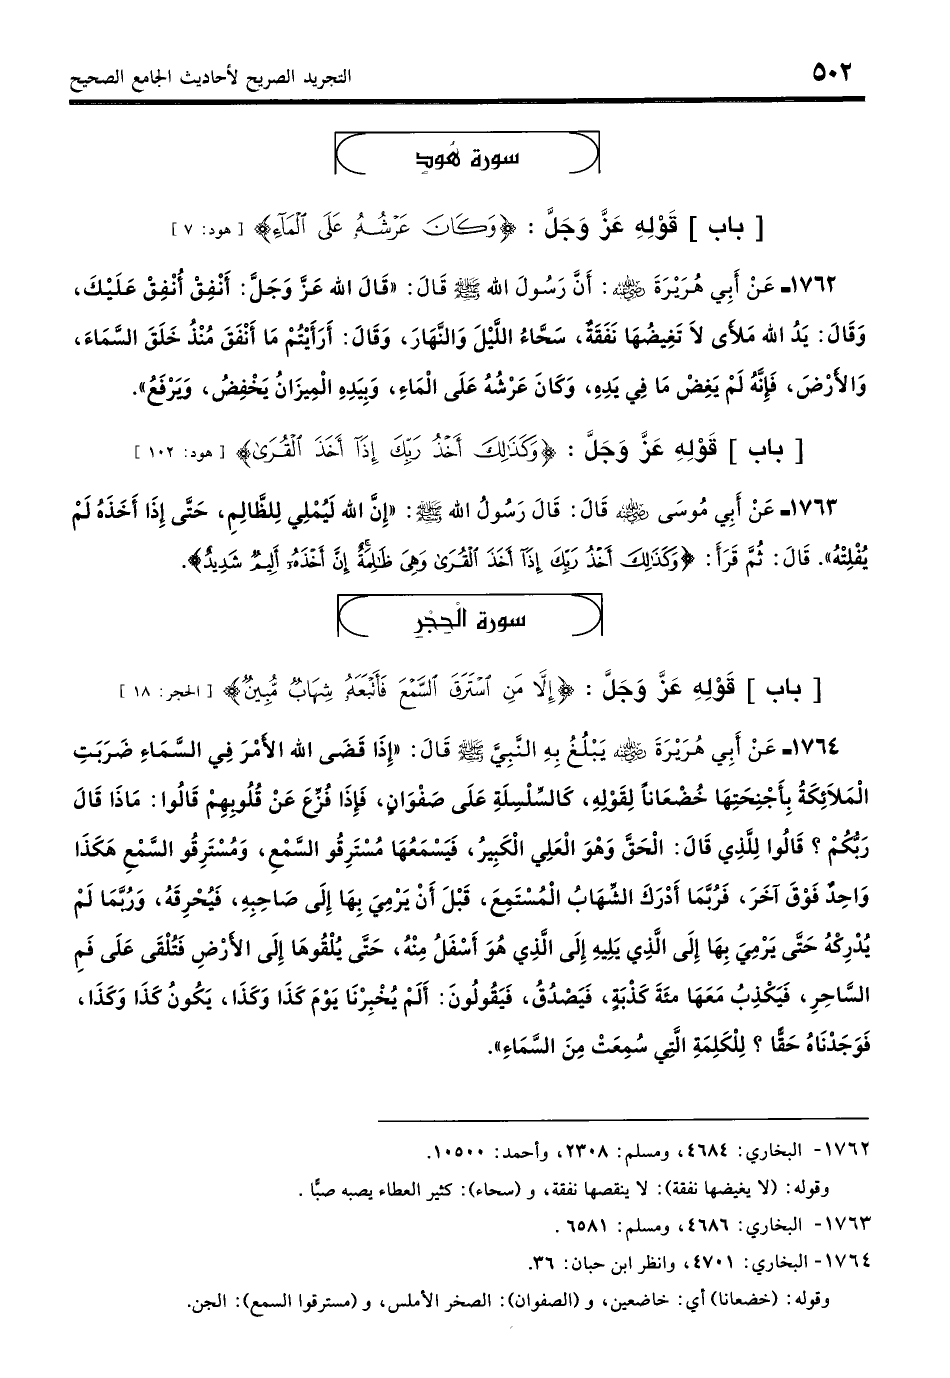 ٥٠٢
التجريد الصريح لأحاديث الجامع الصحيح
سورة هُودٍ
[ باب ] قَوْلِهِ عَزَّ وَجَلَّ : ﴿وَكَانَ عَرْشُهُ عَلَى الْمَآءِ﴾ [ هود: ٧ ]
١٧٦٢ـ عَنْ أَبِي هُرَيْرَةَ ﵁: أَنَّ رَسُولَ الله ﷺ قَالَ: «قَالَ الله عَزَّ وَجَلَّ: أَنْفِقْ أُنْفِقْ عَلَيْكَ،
وَقَالَ: يَدُ الله مَلأَى لاَ تَغِيضُهَا نَفَقَةٌ، سَحَّاءُ اللَّيْلَ وَالنَّهَارَ، وَقَالَ: أَرَأَيْتُمْ مَا أَنْفَقَ مُنْذُ خَلَقَ السَّمَاءَ،
وَالأَرْضَ، فَإِنَّهُ لَمْ يَغِضْ مَا فِي يَدِهِ، وَكَانَ عَرْشُهُ عَلَى الْمَاءِ، وَبِيَدِهِ الْمِيزَانُ يَخْفِضُ، وَيَرْفَعُ».
[ باب ] قَوْلِهِ عَزَّ وَجَلَّ : ﴿وَكَذَٰلِكَ أَخْذُ رَبِّكَ إِذَآ أَخَذَ الْقُرَىٰ﴾ [ هود: ١٠٢ ]
١٧٦٣ـ عَنْ أَبِي مُوسَى ﵁ قَالَ: قَالَ رَسُولُ الله ﷺ: «إِنَّ الله لَيُمْلِي لِلظَّالِمِ، حَتَّى إِذَا أَخَذَهُ لَمْ
يُفْلِتْهُ». قَالَ: ثُمَّ قَرَأَ: ﴿وَكَذَٰلِكَ أَخْذُ رَبِّكَ إِذَآ أَخَذَ الْقُرَىٰ وَهِيَ ظَٰلِمَةٌ ۚ إِنَّ أَخْذَهُۥٓ أَلِيمٌ شَدِيدٌ﴾.
سورة الْحِجْرِ
[ باب ] قَوْلِهِ عَزَّ وَجَلَّ : ﴿إِلَّا مَنِ اسْتَرَقَ السَّمْعَ فَأَتْبَعَهُۥ شِهَابٌ مُّبِينٌ﴾ [ الحجر: ١٨ ]
١٧٦٤ـ عَنْ أَبِي هُرَيْرَةَ ﵁ يَبْلُغُ بِهِ النَّبِيَّ ﷺ قَالَ: «إِذَا قَضَى الله الأَمْرَ فِي السَّمَاءِ ضَرَبَتِ
الْمَلاَئِكَةُ بِأَجْنِحَتِهَا خُضْعَاناً لِقَوْلِهِ، كَالسِّلْسِلَةِ عَلَى صَفْوَانٍ، فَإِذَا فُزِّعَ عَنْ قُلُوبِهِمْ قَالُوا: مَاذَا قَالَ
رَبُّكُمْ ؟ قَالُوا لِلَّذِي قَالَ: الْحَقَّ وَهْوَ الْعَلِي الْكَبِيرُ، فَيَسْمَعُهَا مُسْتَرِقُو السَّمْعِ، وَمُسْتَرِقُو السَّمْعِ هَكَذَا
وَاحِدٌ فَوْقَ آخَرَ، فَرُبَّمَا أَدْرَكَ الشِّهَابُ الْمُسْتَمِعَ، قَبْلَ أَنْ يَرْمِيَ بِهَا إِلَى صَاحِبِهِ، فَيُحْرِقَهُ، وَرُبَّمَا لَمْ
يُدْرِكْهُ حَتَّى يَرْمِيَ بِهَا إِلَى الَّذِي يَلِيهِ إِلَى الَّذِي هُوَ أَسْفَلُ مِنْهُ، حَتَّى يُلْقُوهَا إِلَى الأَرْضِ فَتُلْقَى عَلَى فَمِ
السَّاحِرِ، فَيَكْذِبُ مَعَهَا مئَةَ كَذْبَةٍ، فَيَصْدُقُ، فَيَقُولُونَ: أَلَمْ يُخْبِرْنَا يَوْمَ كَذَا وَكَذَا، يَكُونُ كَذَا وَكَذَا،
فَوَجَدْنَاهُ حَقًّا ؟ لِلْكَلِمَةِ الَّتِي سُمِعَتْ مِنَ السَّمَاءِ».
١٧٦٢- البخاري: ٤٦٨٤، ومسلم: ٢٣٠٨، وأحمد: ١٠٥٠٠.
وقوله: (لا يغيضها نفقة): لا ينقصها نفقة، و (سحاء): كثير العطاء يصبه صبًّا .
١٧٦٣- البخاري: ٤٦٨٦، ومسلم: ٦٥٨١ .
١٧٦٤- البخاري: ٤٧٠١، وانظر ابن حبان: ٣٦.
وقوله: (خضعانا) أي: خاضعين، و (الصفوان): الصخر الأملس، و (مسترقوا السمع): الجن.